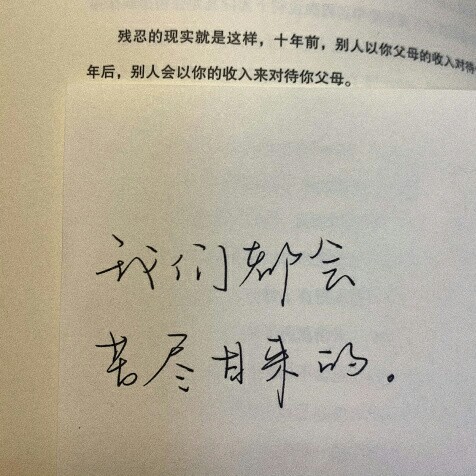 残忍的现实就是这样，十年前，别人以你父母的收入对待
年后，别人会以你的收入来对待你父母。
我们都会
苦尽甘来的.